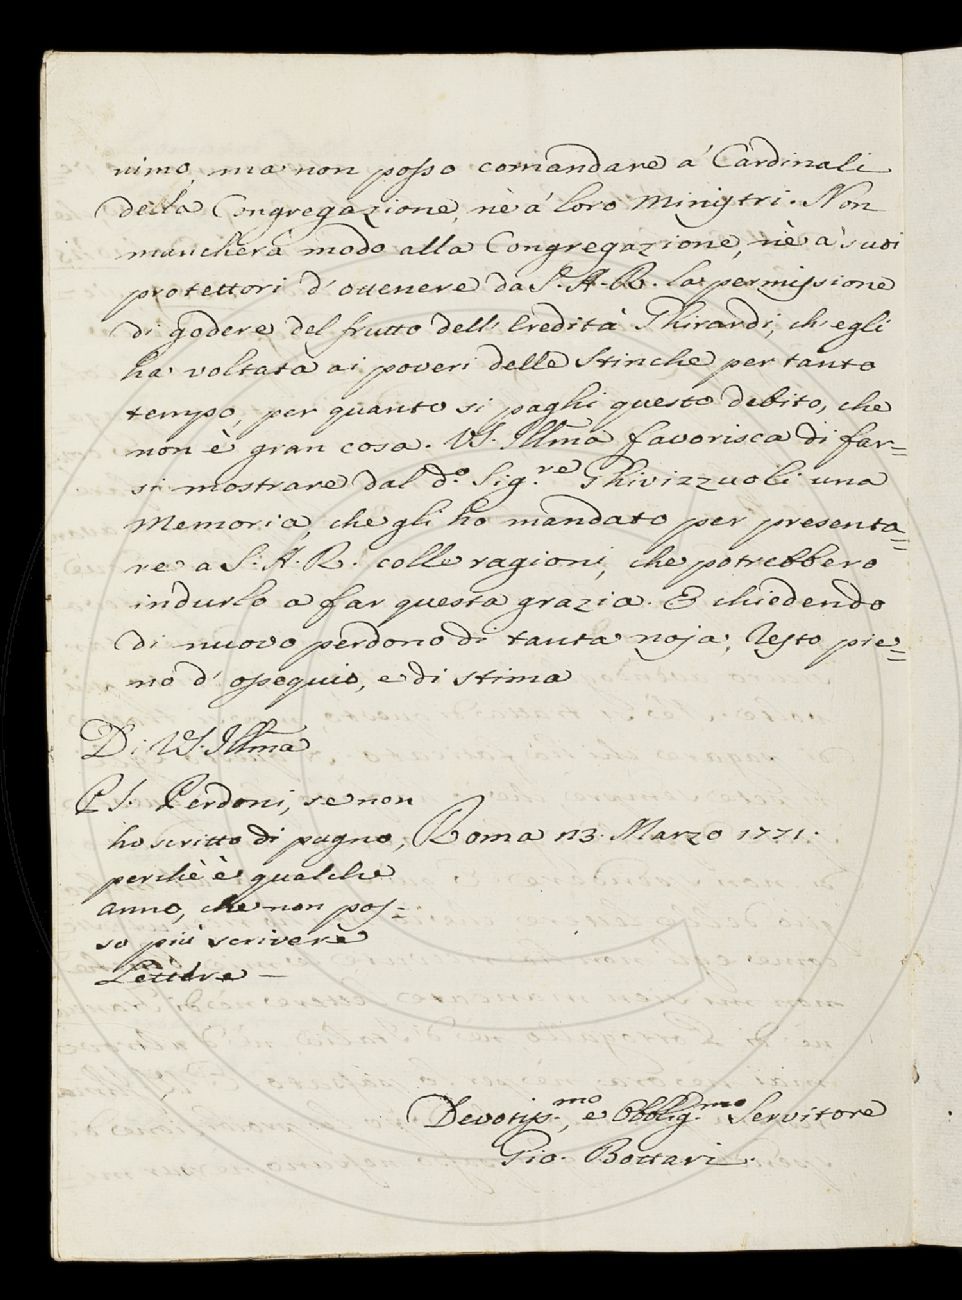 nimo, ma non posso comandare a' Cardinali
della Congregazione, nè a' loro Ministri. Non
mancherà modo alla Congregazione, nè a' suoi
protettori d'ottenere da S. A. R. la permissione
di godere del frutto dell'Eredità Ghirardi, ch'egli
ha voltata ai poveri delle Stinche per tanto
tempo, per quanto si paghi questo debito, che
non è gran cosa. VS. Illma favorisca di far=
si mostrare dal do. Sig.re Ghivizzuoli una
Memoria, che gli ho mandato per presenta=
re a S. A. R. colle ragioni, che potrebbero
indurlo a far questa grazia. E chiedendo
di nuovo perdono di tanta noja, Resto pie=
no d'ossequio, e di stima
Di VS. Illma
PS. Perdoni, se non
ho scritto di pugno, Roma 13. Marzo 1771.
perchè è qualche
anno, che non pos=
so più scrivere
Lettere —
Devotiss.mo, e Obblig.mo Servitore
Gio. Bottari.